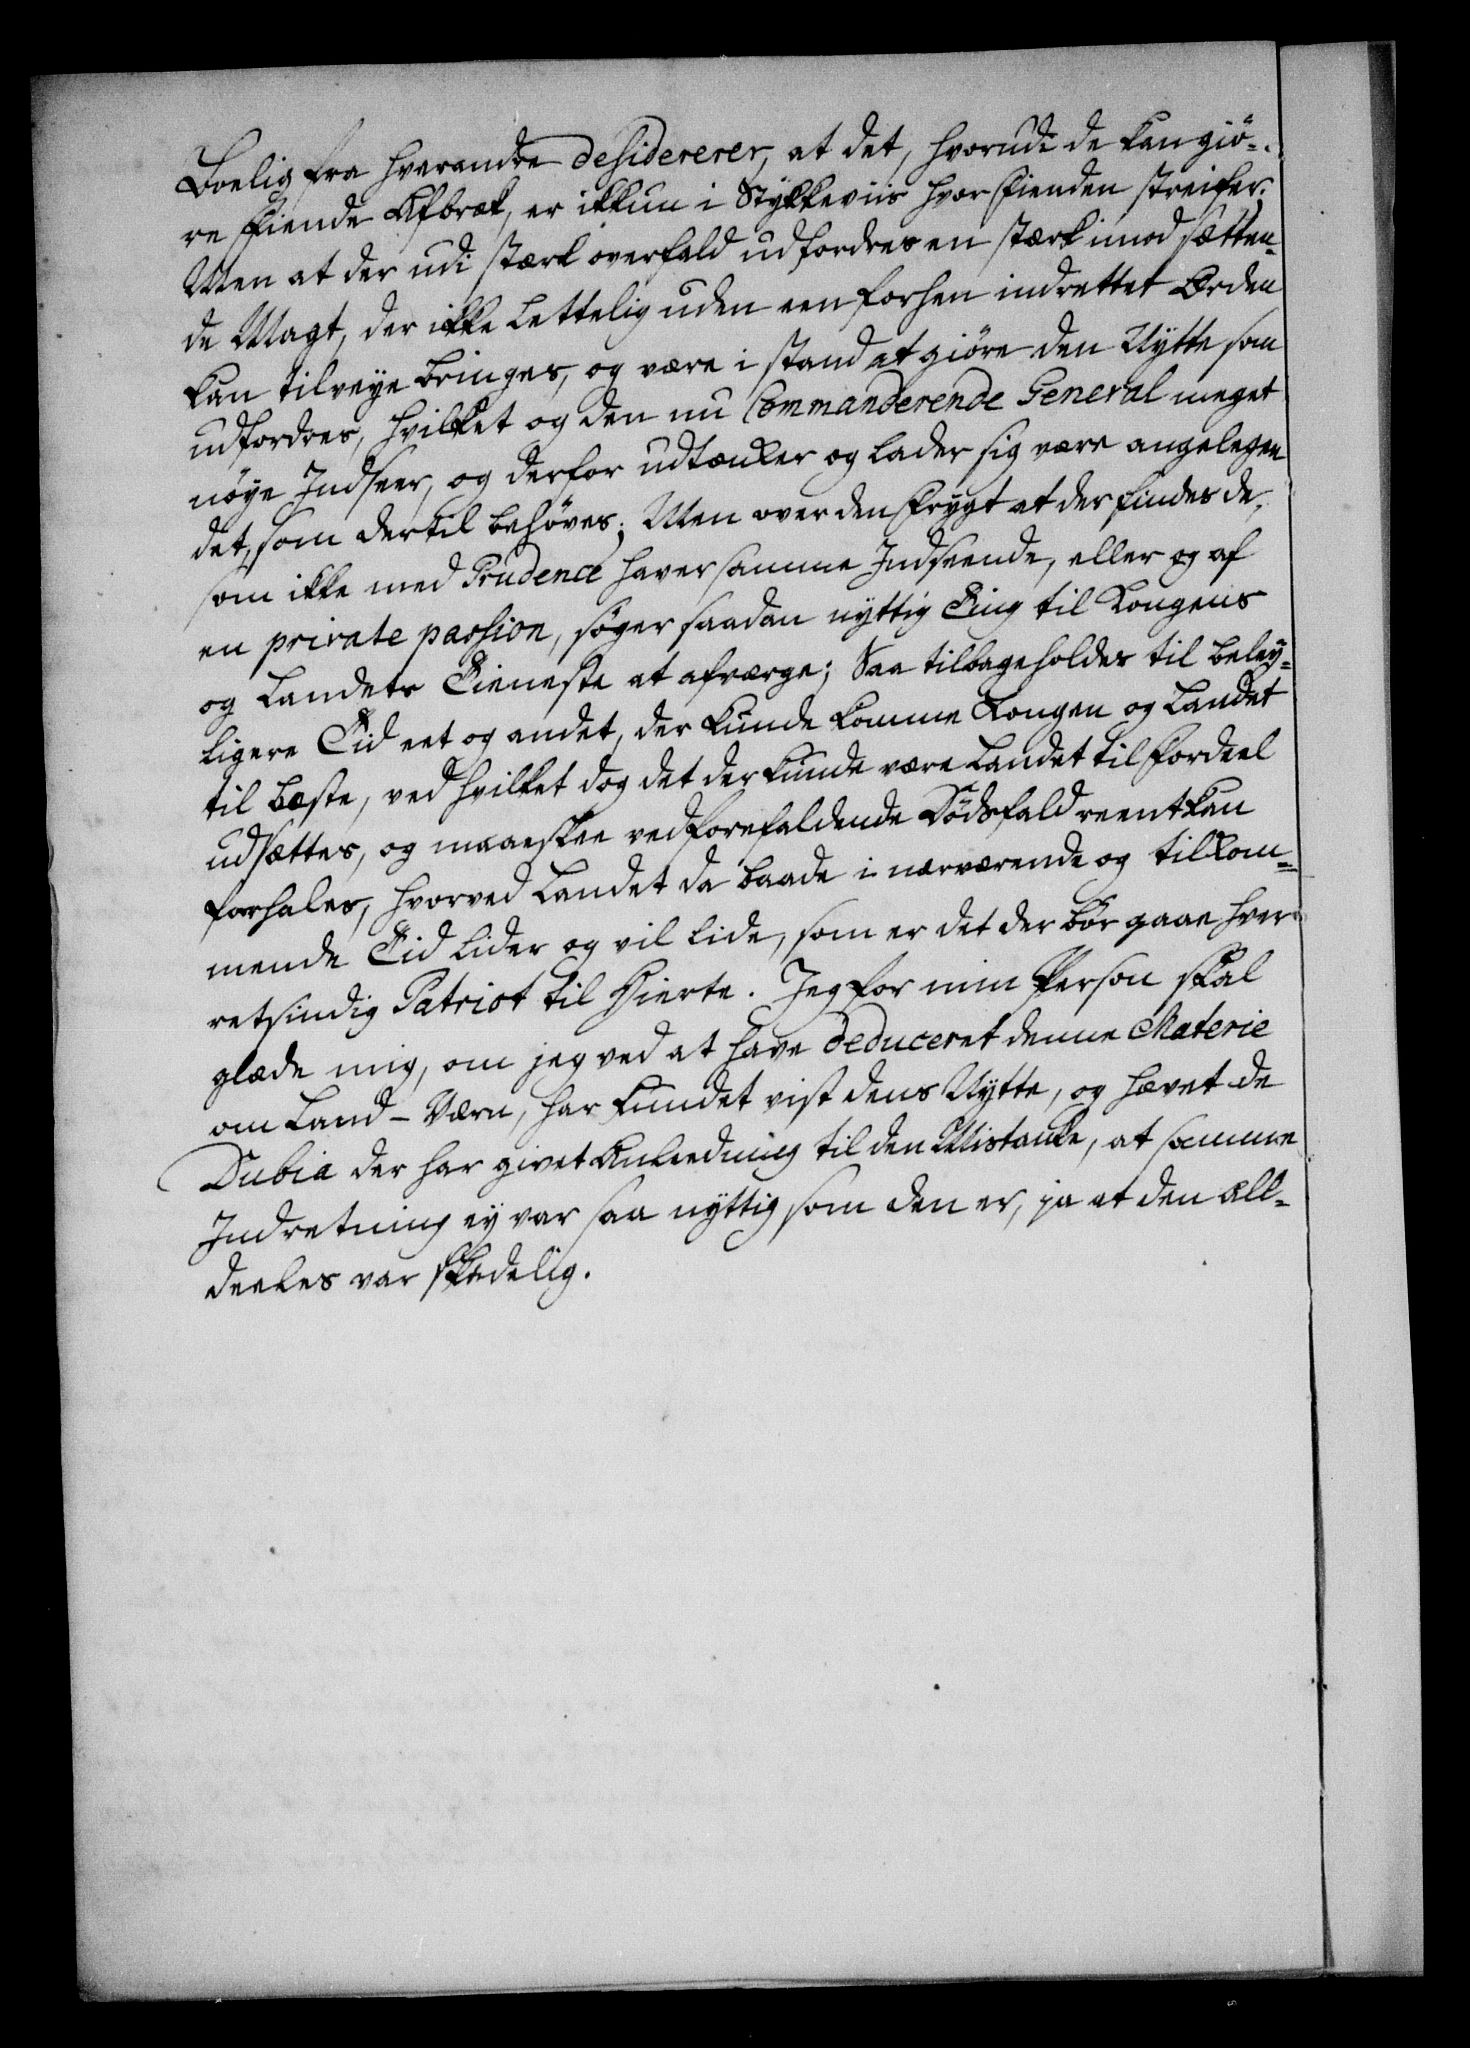 Boelig fra hverandre desidererer, at det, hvorudi de kan giö-
re Fiende Afbræk, er ikkun i Stykkeviis hvor Fienden streifer;
Men at der udi stærk overfald udfordres en stærk imod sætten-
de Magt, der ikke lettelig uden een forhen indrettet Orden
kan tilveye bringes, og være i stand at giöre den Nytte som
udfordres, hvilket og den nu Commanderende General meget
nöye Indseer, og derfor udtænker og lader sig være angelegen
det, som dertil behöves; Men over den Frygt at der findes de,
som ikke med Prudence haver samme Indseende, eller og af
en private passion, söger saadan nyttig Ting til Kongens
og Landets Tieneste at afværge; Saa tilbageholdes til beley-
ligere Tid eet og andet, der kunde komme Kongen og Landet
til bæste, ved hvilket dog det der kunde være Landet til Fordeel
udsættes, og maaeskee ved forefaldende Dödsfald reent kan
forhales, hvorved Landet da baade i nærværende og tilkom-
mende Tid lider og vil lide, som er det der bör gaae hver
retsindig Patriot til Hierte. Jeg for min Person skal
glæde mig, om jeg ved at have deduceret denne Materie
om Land-Værn, har kundet vist dens Nytte, og hævet de
Dubia der har givet Anleedning til den Mistanke, at samme
Indretning ey var saa nyttig som den er, ja at den all-
deeles var skadelig.